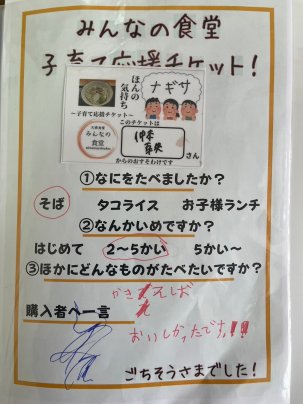 みんなの食堂
子育て応援チケット!
ほんの
気持ち
ナギサ
〜子育て応援チケット〜
このチケットは
みんなの
食堂
さん
からのおすそわけです
①なにをたべましたか?
そば タコライス お子様ランチ
②なんかいめですか?
はじめて 2〜5かい 5かい〜
③ほかにどんなものがたべたいですか?
購入者へ一言
おいしかったです!!
ごちそうさまでした!